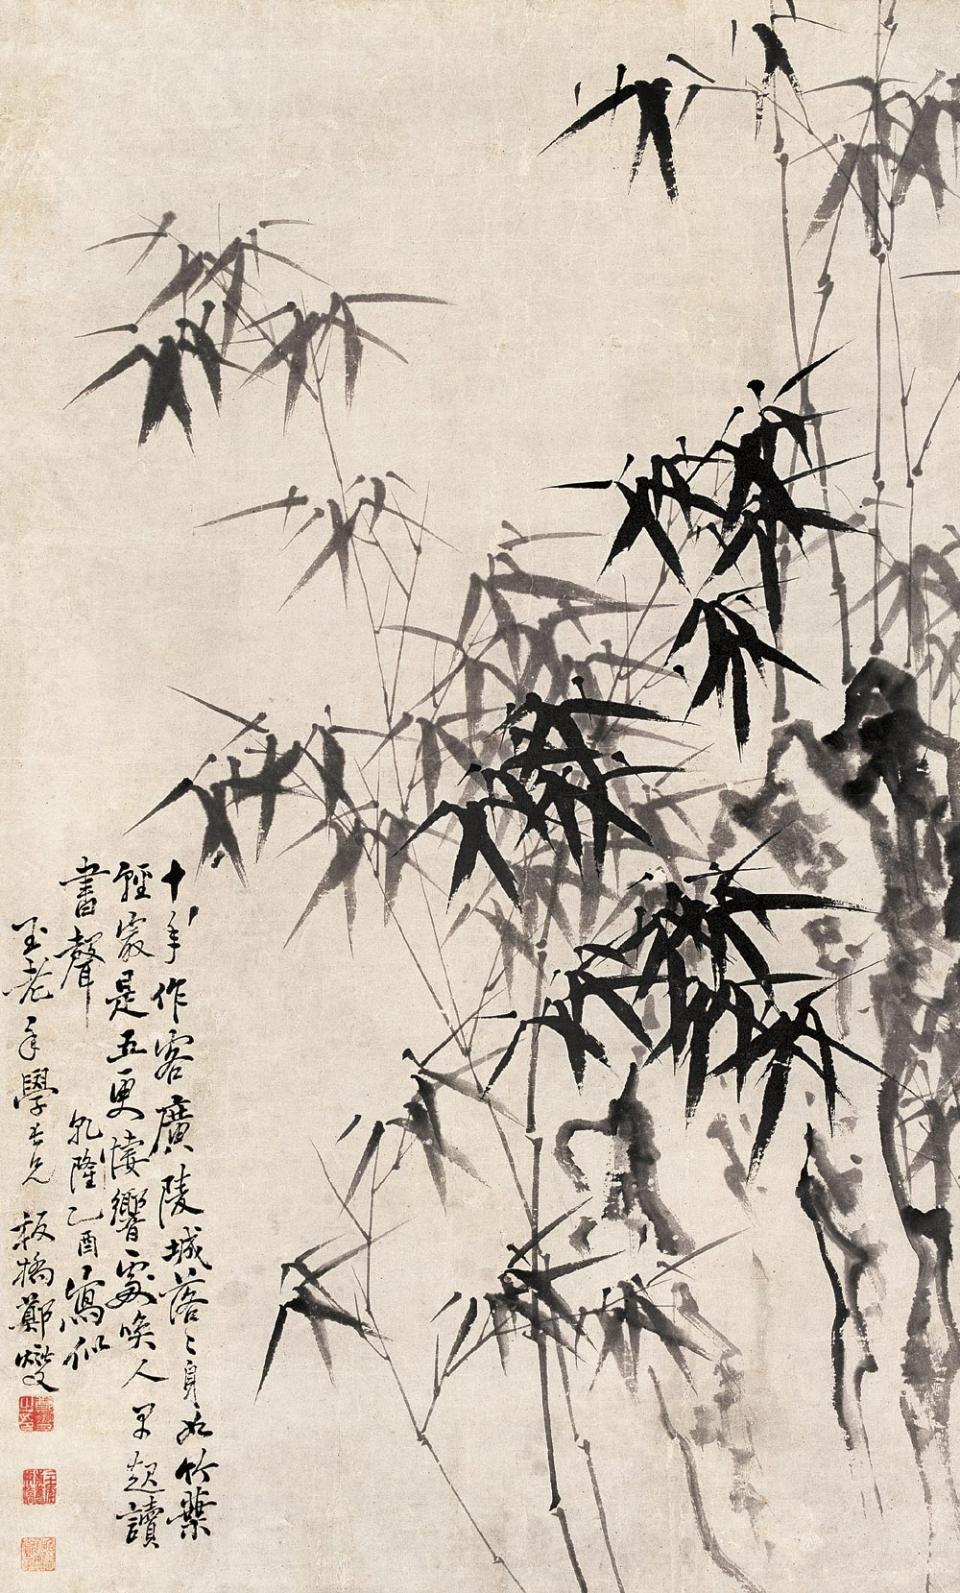 十年作客廣陵城落〻身如竹葉
輕最是五更悽響處喚人早起讀
書聲 乾隆乙酉寫似
老年學長兄 板橋鄭燮